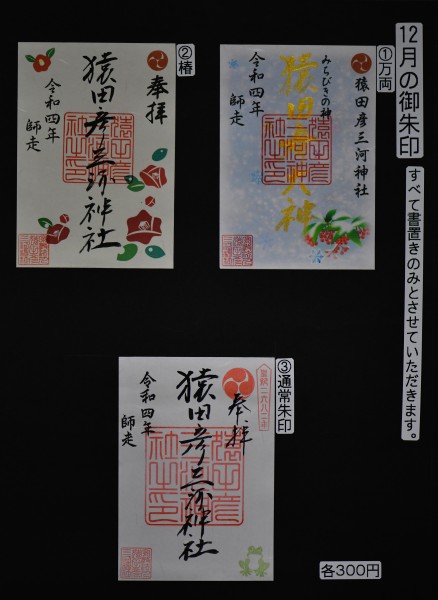 12月の御朱印
すべて書置きのみとさせていただきます。
①万両
猿田彦三河神社
みちびきの神
猿田彦大神
令和四年
師走
②椿
奉拝
猿田彦三河神社
令和四年
師走
③通常朱印
奉拝
猿田彦三河神社
令和四年
師走
各300円